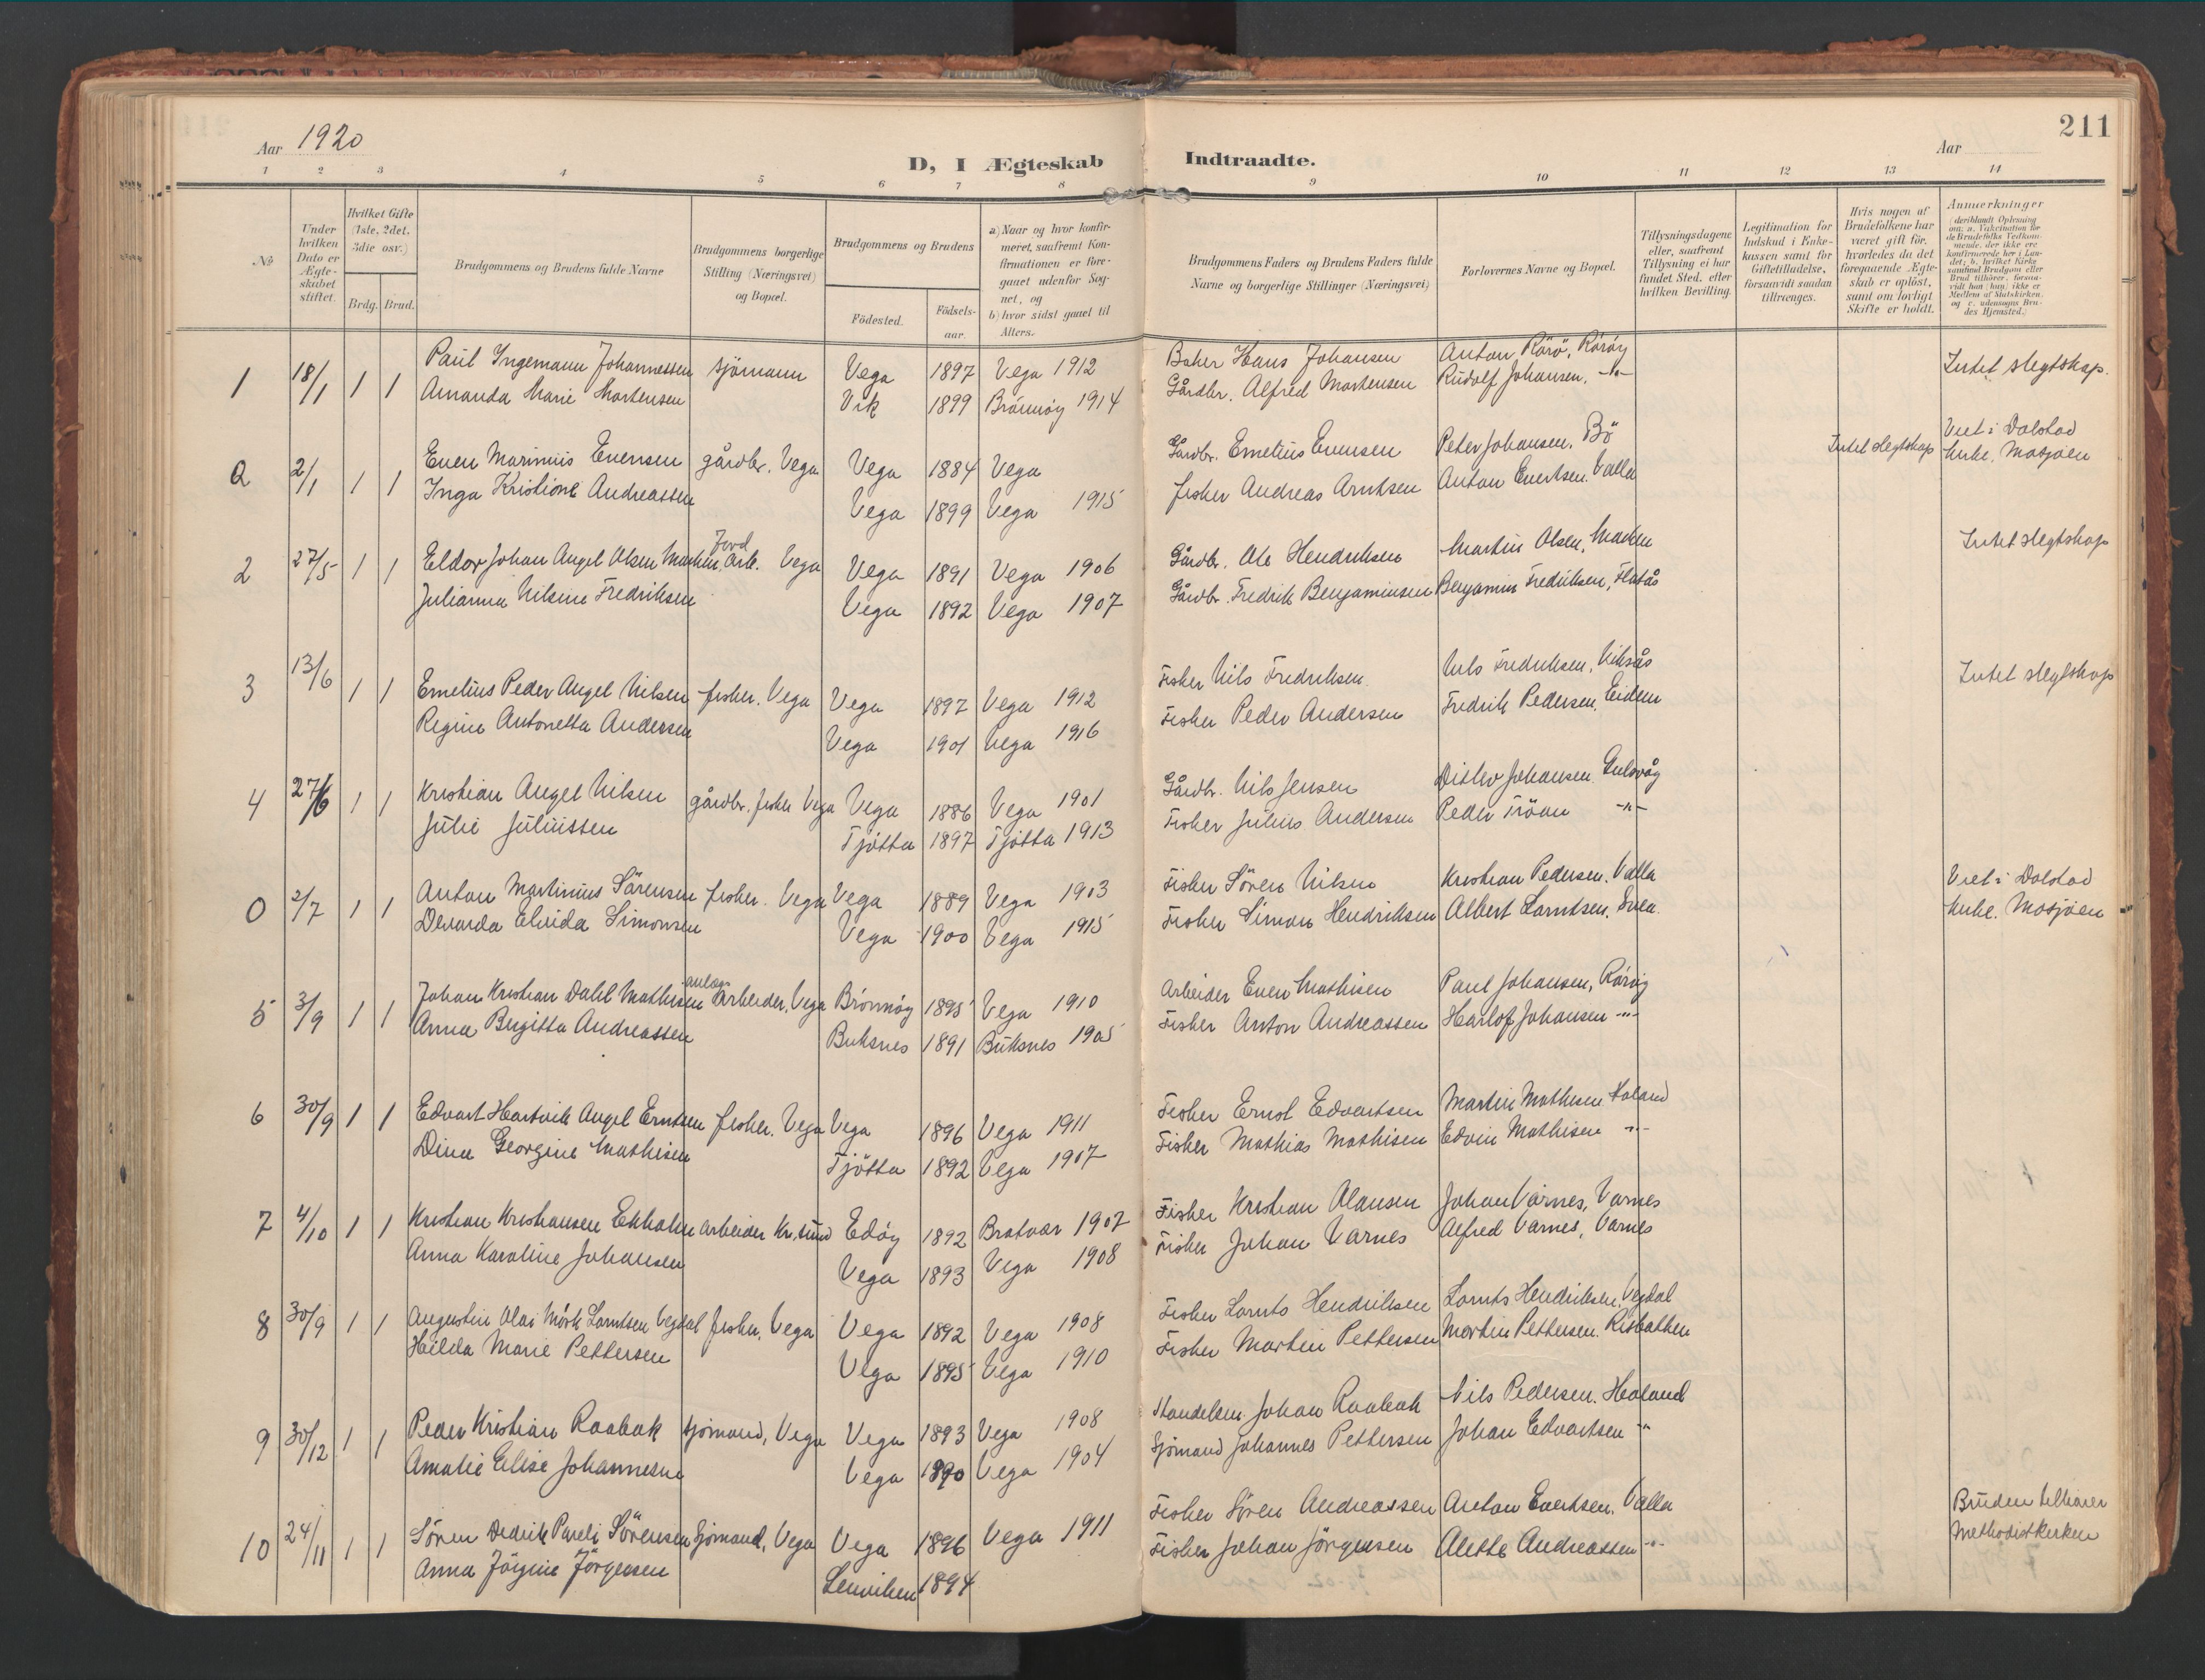 211
Aar 1920
Aar
D, I Ægteskab Indtraadte.
1 2 3 4 5 6 7 8 9 10 11 12 13 14
№
Under hvilken Dato er Ægteskabet stiftet.
Hvilket Gifte (1ste, 2det, 3die osv.)
Brdg. Brud.
Brudgommens og Brudens fulde Navne
Brudgommens borgerlige Stilling (Næringsvei) og Bopæl.
Brudgommens og Brudens
Födested.
Födselsaar.
a) Naar og hvor konfirmeret, saafremt Konfirmationen er foregaaet udenfor Sognet, og
b) hvor sidst gaaet til Alters.
Brudgommens Faders og Brudens Faders fulde Navne og borgerlige Stillinger (Næringsvei)
Forlovernes Navne og Bopæl.
Tillysningsdagene eller, saafremt Tillysning ei har fundet Sted, efter hvilken Bevilling.
Legitimation for Indskud i Enkekassen samt for Giftetilladelse, forsaavidt saadan tiltrænges.
Hvis nogen af Brudefolkene har været gift för, hvorledes da det foregaaende Ægteskab er oplöst, samt om lovligt Skifte er holdt.
Anmerkninger (deriblandt Oplysning om: a. Vakcination for de Brudefolks Vedkommende, der ikke ere konfirmerede her i Landet; b. hvilket Kirkesamfund Brudgom eller Brud tilhörer, forsaavidt han (hun) ikke er Medlem af Statskirken, og c. udensogns Brudes Hjemsted.)
1 18/1 1 1 Paul Ingemann Johannessen sjömann Vega 1897 Vega 1912 Baker Hans Johansen Anton Rörö, Röröy Intet slegtskap.
Amanda Marie Mortensen Vik 1899 Brönnöy 1914 Gårdbr. Alfred Mortensen Rudolf Johansen. -"-
2 2/1 1 1 Even Marinius Evensen gårdbr. Vega Vega 1884 Vega Gårdbr. Emelius Evensen Peter Johansen. Bö Intet slegtskap Viet i Dolstad
Inga Kristine Andreassen Vega 1899 Vega 1915 fisker Andreas Arntsen Anton Evertsen. Valla kirke. Mosjöen
2 27/5 1 1 Eldor Johan Angel Olsen Jord Arb. Vega Vega 1891 Vega 1906 Gårdbr. Ole Hendriksen Martin Olsen, Intet slegtskap
Julianna Nilsine Fredriksen Vega 1892 Vega 1907 Gårdbr. Fredrik Benjaminsen Benjamin Fredriksen, Flatås
3 13/6 1 1 Emelius Peder Angel Nilsen fisker. Vega Vega 1897 Vega 1912 Fisker Nils Fredriksen Nils Fredriksen, Intet slegtskap
Regine Antonetta Andersen Vega 1901 Vega 1916 Fisker Peder Andersen Fredrik Pedersen, Eidem
4 27/6 1 1 Kristian Angel Nilsen gårdbr. fisker Vega Vega 1886 Vega 1901 Gårdbr. Nils Jensen Ditlev Johansen. Gulsvåg
Julie Juliussen Tjötta 1897 Tjötta 1913 Fisker Julius Andersen Peder Tröan -"-
0 2/7 1 1 Anton Martinius Sörensen fisker. Vega Vega 1889 Vega 1903 Fisker Sören Nilsen Kristian Pedersen. Valla Viet i Dolstad
Elvida Simonsen Vega 1900 Vega 1915 Fisker Simon Hendriksen Albert Lorntsen. kirke. Mosjöen
5 3/9 1 1 Johan Kristian Dahl Mathisen anlægs Arbeider, Vega Brönnöy 1895 Vega 1910 Arbeider Even Mathisen Paul Johansen, Röröy
Anna Birgitta Andreassen Buksnes 1891 Buksnes 1905 Fisker Anton Andreassen Harlof Johansen -"-
6 30/9 1 1 Edvart Hartvik Angel Erntsen fisker. Vega Vega 1896 Vega 1911 Fisker Ernst Edvartsen Martin Mathisen
Dina Georgine Mathisen Tjötta 1892 Vega 1907 Fisker Mathias Mathisen Edvin Mathisen -"-
7 4/10 1 1 Kristian Kristiansen Ekholm arbeider Kr.sund Edöy 1892 Bratvær 1907 Fisker Kristian Olausen Johan Varnes, Varnes
Anna Karoline Johansen Vega 1893 Vega 1908 Fisker Johan Varnes Alfred Varnes, Varnes
8 30/9 1 1 Augustin Olai Mörk Lorntsen Vegdal fisker, Vega Vega 1892 Vega 1908 Fisker Lornts Hendriksen Lornts Hendriksen. Vegdal
Hilda Marie Pettersen Vega 1895 Vega 1910 Fisker Martin Pettersen Martin Pettersen.
9 30/12 1 1 Peder Kristian Raabak sjömand, Vega Vega 1893 Vega 1908 Johan Raabak Nils Pedersen.
Amalie Elise Johannesen Vega 1890 Vega 1904 Sjömand Johannes Pettersen Johan Edvartsen -"-
10 24/11 1 1 Sören Dedrik Pareli Sörensen Sjömand, Vega Vega 1896 Vega 1911 Fisker Sören Andreassen Anton Evertsen. Valla Bruden tilhörer
Anna Jörgine Jörgensen Lenviken 1894 Fisker Johan Jörgensen Andreassen -"- Methodistkirken